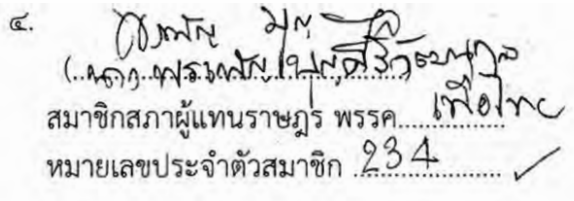 ๔.
(นาง พรเพ็ญ บุญศิริวัฒนกุล
สมาชิกสภาผู้แทนราษฎร พรรค.....เพื่อไทย
หมายเลขประจำตัวสมาชิก .234..........